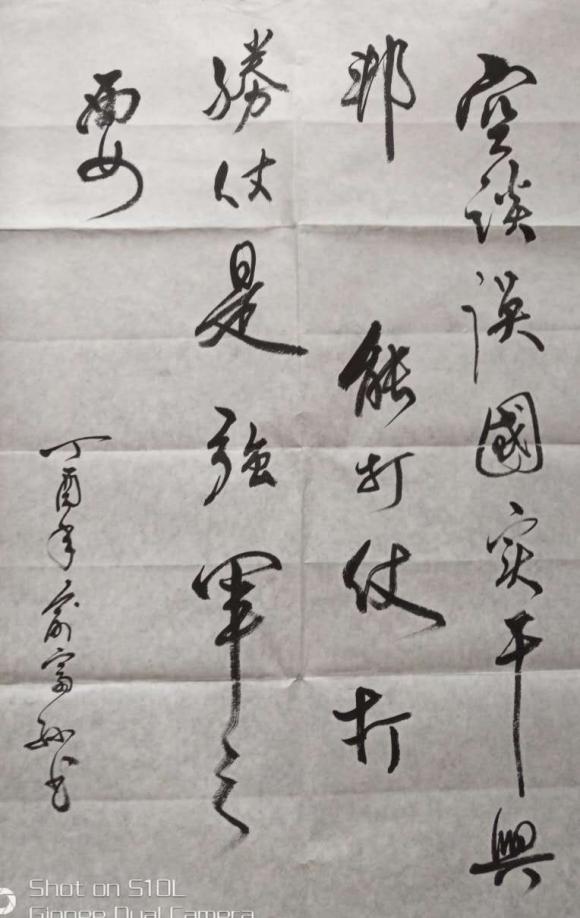 空談误國实干興
邦 能打仗打
勝仗是强軍之
要
丁酉年俞富孙书
Shot on S10L
Gionee Dual Camera